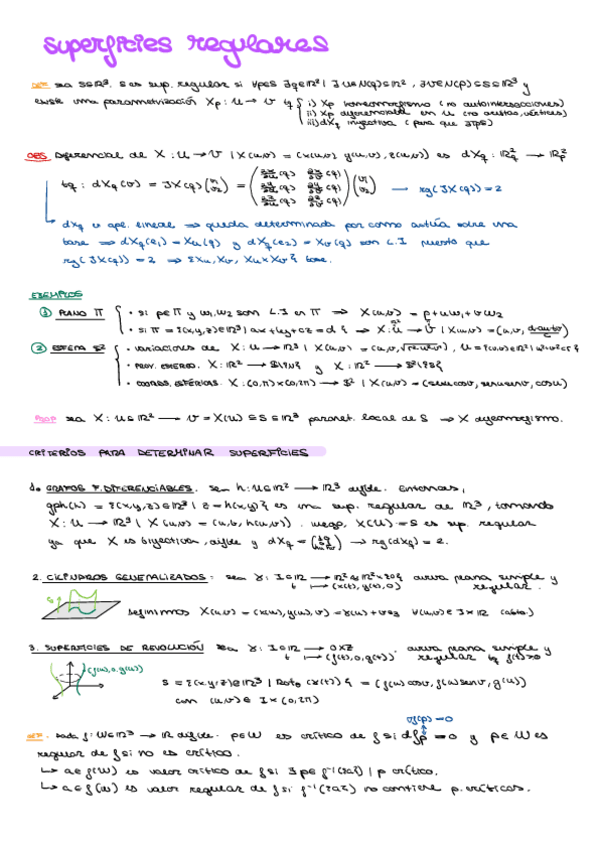 superficies regulares
DEF sea S⊆ℝ³. S es sup. regular si ∀p∈S ∃q∈ℝ² | ∃U∈N(q)⊆ℝ², ∃V∈N(p)⊆S⊆ℝ³ y
existe una parametrización Xp: U → V tq { i) Xp homeomorfismo (no autointersecciones)
ii) Xp diferenciable en U (no aristas, vértices)
iii) dXq inyectiva (para que ∃TpS)
OBS Diferencial de X: U → V | X(u,v) = (x(u,v), y(u,v), z(u,v)) es dXq: ℝ²q → ℝ³p
tq: dXq(v) = JX(q)(v1 v2) = (∂x/∂u(q) ∂x/∂v(q) ∂y/∂u(q) ∂y/∂v(q) ∂z/∂u(q) ∂z/∂v(q))(v1 v2) → rg(JX(q)) = 2
dXq es apl. lineal ⇒ queda determinada por como actúa sobre una
base ⇒ dXq(e1) = Xu(q) y dXq(e2) = Xv(q) son L.I puesto que
rg(JX(q)) = 2 ⇒ {Xu, Xv, Xu×Xv} base.
EJEMPLOS
① PLANO Π { · si p∈Π y w1, w2 son L.I en Π ⇒ X(u,v) = p+uw1+vw2
· si Π = {(x,y,z)∈ℝ³ | ax+by+cz=d} ⇒ X: U → V | X(u,v) = (u,v, d-au-bv/c)
② ESFERA S² { · variaciones de X: U → ℝ³ | X(u,v) = (u,v,√r²-u²-v²), U = {(u,v)∈ℝ² | u²+v²<r²}
· PROY. ESTEREO. X: ℝ² → S²\{N} y X: ℝ² → S²\{S}
· COORD. ESFÉRICAS. X: (0,π)×(0,2π) → S² | X(u,v) = (senu cosv, senu senv, cosu)
PROP sea X: U⊆ℝ² → V = X(U) ⊆ S⊆ℝ³ paramet. local de S ⇒ X difeomorfismo.
CRITERIOS PARA DETERMINAR SUPERFICIES
1. GRAFOS F. DIFERENCIABLES. sea h: U⊆ℝ² → ℝ³ difble. Entonces,
gph(h) = {(x,y,z)∈ℝ³ | z=h(x,y)} es una sup. regular de ℝ³, tomando
X: U → ℝ³ | X(u,v) = (u,v, h(u,v)). Luego, X(U) = S es sup. regular
ya que X es biyectiva, difble y dXq = (1 0 0 1 hu hv) → rg(dXq) = 2.
2. CILINDROS GENERALIZADOS: sea γ: I⊆ℝ → ℝ² ≅ ℝ²×{0} curva plana simple y
t → (x(t), y(t), 0) regular.
definimos X(u,v) = (x(u), y(u), v) = γ(u)+ve3 ∀(u,v) ∈ I×ℝ (abto.)
3. SUPERFICIES DE REVOLUCIÓN sea γ: I⊆ℝ → OXZ , curva plana simple y
t → (f(t), 0, g(t)) regular tq f(t)>0
(f(u), 0, g(u))
S = {(x,y,z)∈ℝ³ | Rotθ(γ(t))} = (f(u)cosv, f(u)senv, g(u))
con (u,v) ∈ I×(0,2π)
∇f(p)=0
DEF. Dada f: W⊆ℝ³ → ℝ difble. p∈W es crítico de f si dfp = 0 y p∈W es
regular de f si no es crítico.
↳ a∈f(W) es valor crítico de f si ∃p∈f⁻¹({a}) | p crítico.
↳ a∈f(W) es valor regular de f si f⁻¹({a}) no contiene p. críticos.